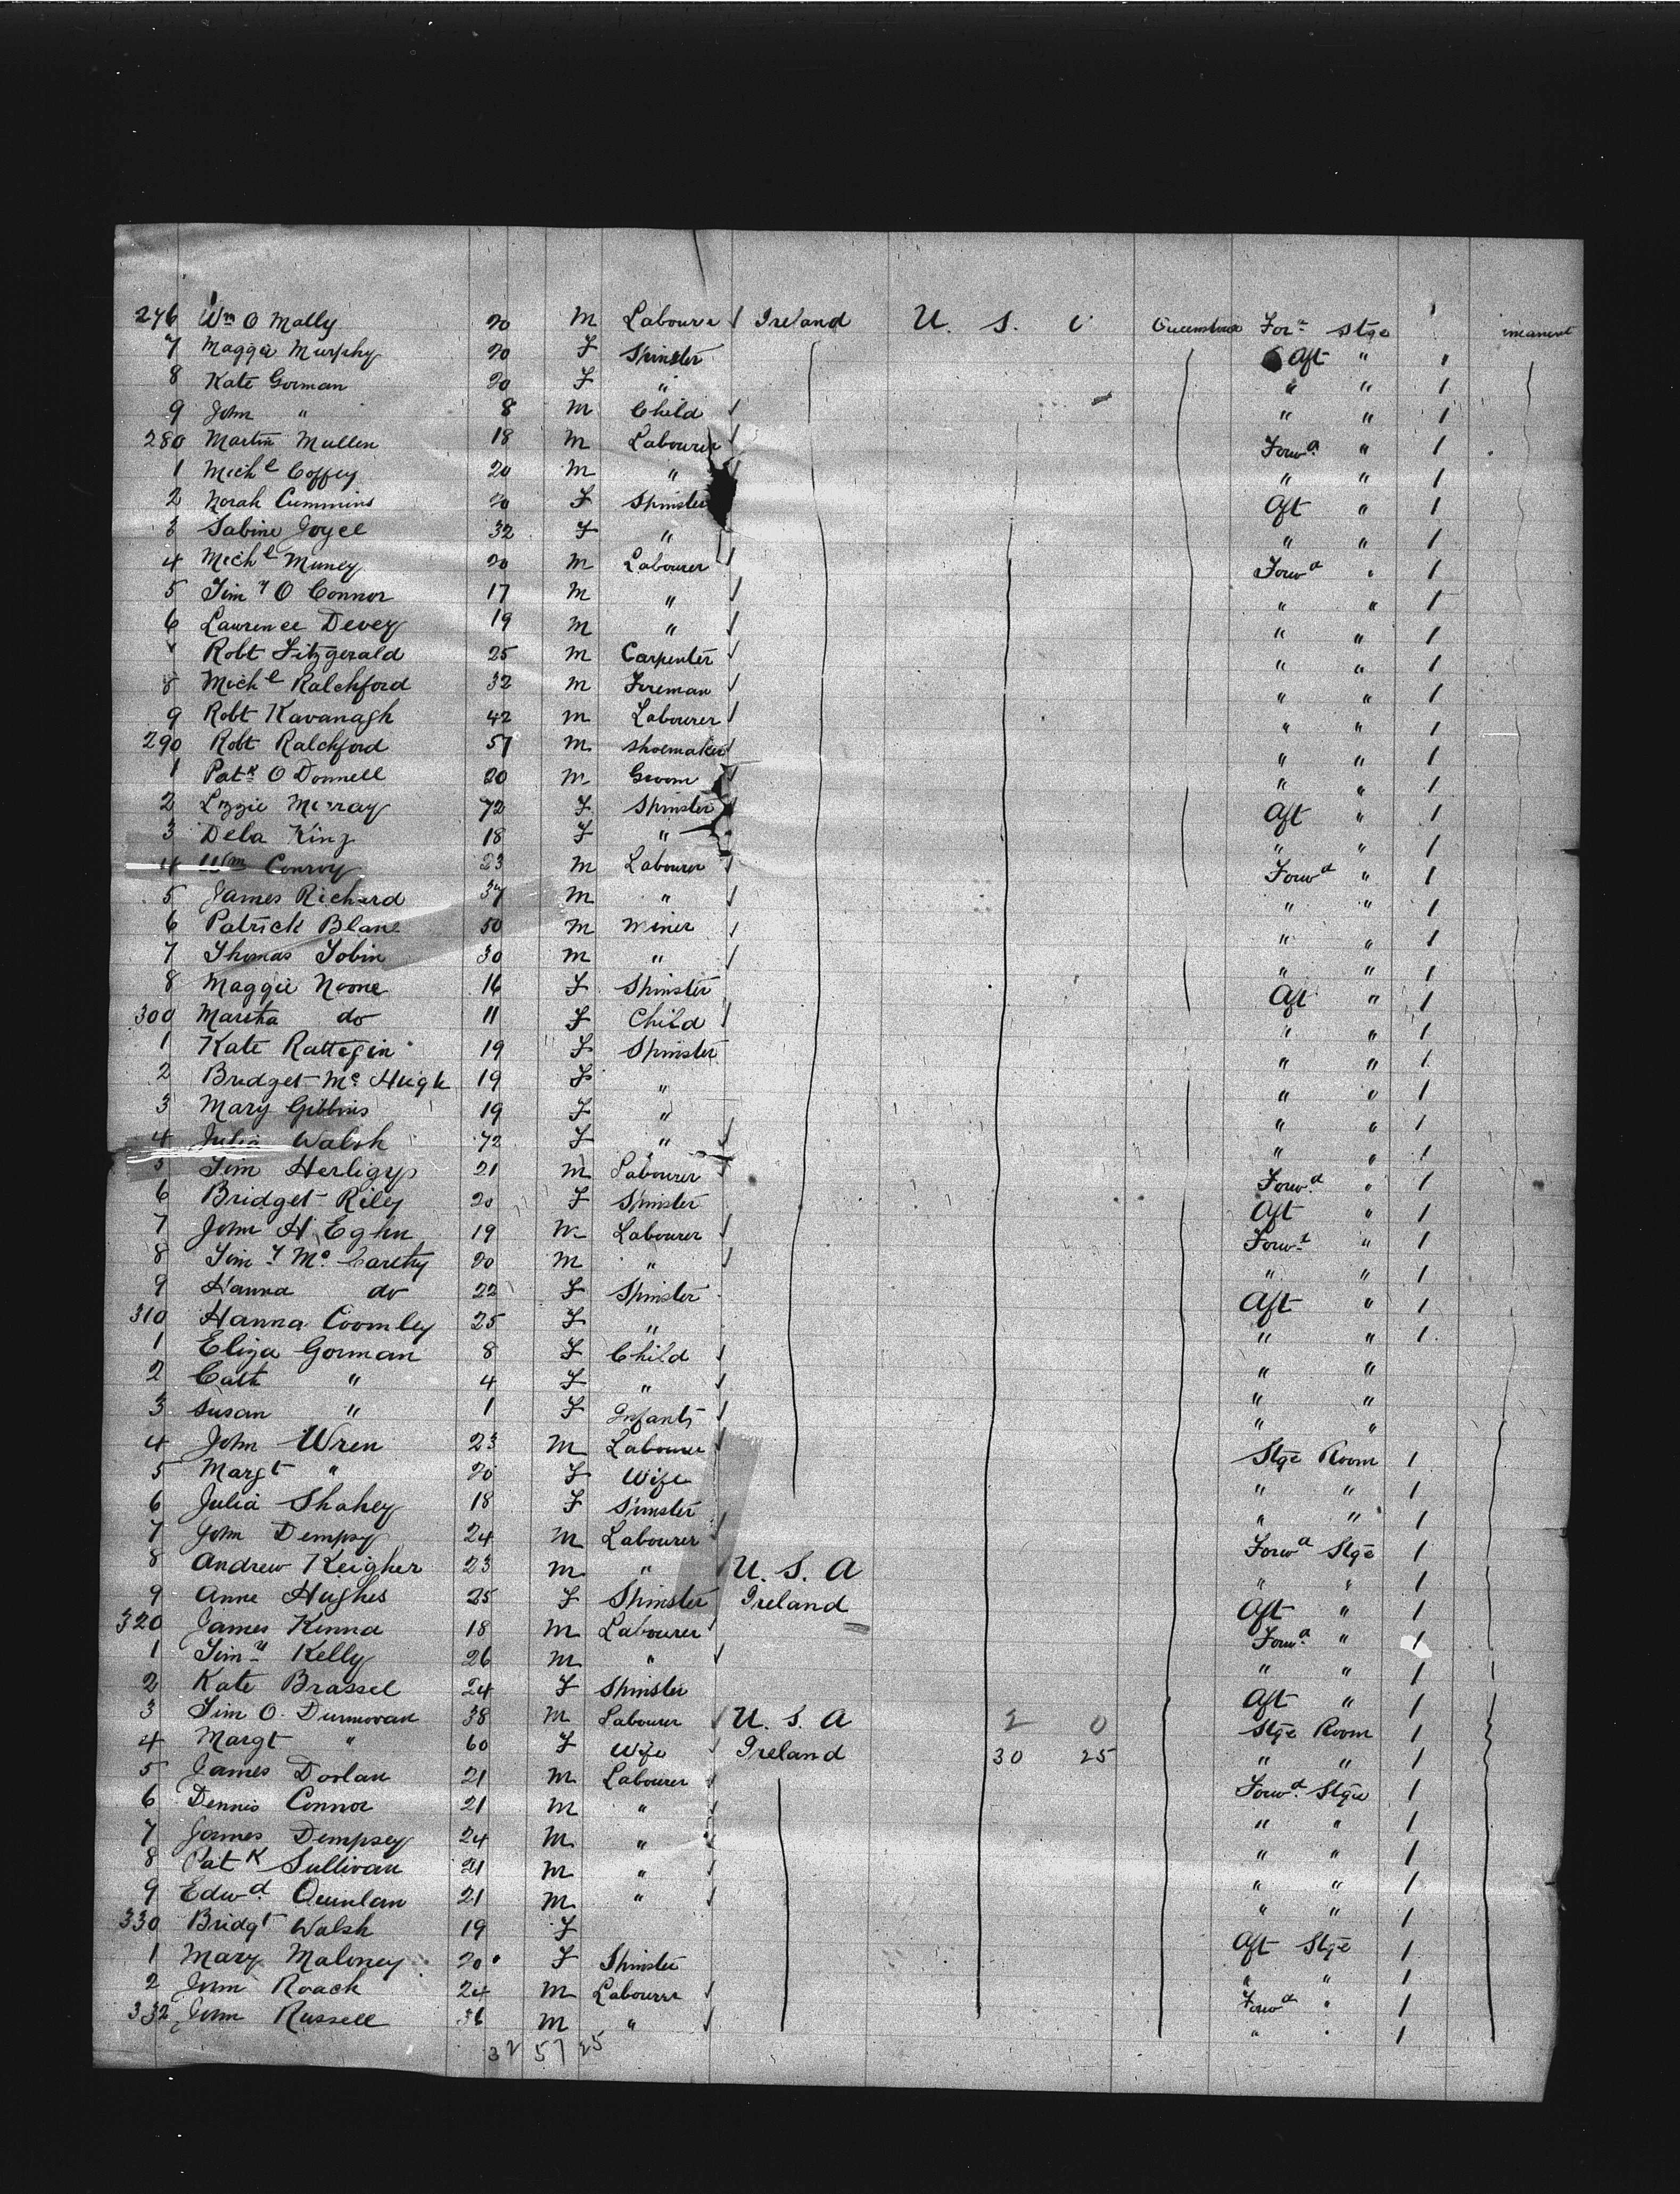 276 Wm O Mally 20 M Labourer Ireland U. S. Queenstown Forw Stge
7 Maggie Murphy 20 F Spinster Aft " 1
8 Kate Gorman 20 F " " " 1
9 John " 8 M Child " " 1
280 Martin Mullen 18 M Labourer Forwd " 1
1 Michl Coffey 20 M " " " 1
2 Norah Cummins 20 F Spinster Aft " 1
3 Sabine Joyce 32 F " " " 1
4 Michl Muney 20 M Labourer Forwd " 1
5 Timy O Connor 17 M " " " 1
6 Lawrence Devey 19 M " " " 1
Robt Fitzgerald 25 M Carpenter " " 1
8 Michl Ralchford 32 M Fireman " " 1
9 Robt Kavanagh 42 M Labourer " " 1
290 Robt Ralchford 57 M Shoemaker " " 1
1 Patk O Donnell 20 M Groom " " 1
2 Lizzie Murray 72 F Spinster Aft " 1
3 Dela King 18 F " " " 1
4 Wm Conroy 23 M Labourer Forwd " 1
5 James Richard 37 M " " " 1
6 Patrick Blane 50 M Miner " " 1
7 Thomas Tobin 30 M " " " 1
8 Maggie Noone 16 F Spinster Aft " 1
300 Martha do 11 F Child " " 1
1 Kate Rattegin 19 F Spinster " " 1
2 Bridget Mc Hugh 19 F " " " 1
3 Mary Gibbins 19 F " " " 1
4 Julia Walsh 72 F " " " 1
5 Tim Herligy 21 M Labourer Forwd " 1
6 Bridget Riley 20 F Spinster Aft " 1
7 John H Eghn 19 M Labourer Forwd " 1
8 Timy Mc Carthy 20 M " " " 1
9 Hanna do 22 F Spinster Aft " 1
310 Hanna Coomley 25 F " " " 1
1 Eliza Gorman 8 F Child " "
2 Cath " 4 F " " "
3 Susan " 1 F Infants " "
4 John Wren 23 M Labourer Stge Room 1
5 Margt " 20 F Wife " " 1
6 Julia Shahey 18 F Spinster " " 1
7 John Dempsy 24 M Labourer Forwd Stge 1
8 Andrew Keigher 23 M " U. S. A " " 1
9 Anne Hughes 25 F Spinster Ireland Aft " 1
320 James Kenna 18 M Labourer Forwd " 1
1 Timy Kelly 26 M " " " 1
2 Kate Brassel 24 F Spinster Aft " 1
3 Tim O. Dunnovan 38 M Labourer U. S. A 2 0 Stge Room 1
4 Margt " 60 F Wife Ireland 30 25 " " 1
5 James Doolan 21 M Labourer Forwd Stge 1
6 Dennis Connor 21 M " " " 1
7 James Dempsey 24 M " " " 1
8 Patk Sullivan 21 M " " " 1
9 Edwd Quinlan 21 M " " " 1
330 Bridgt Walsh 19 F Aft Stge 1
1 Mary Maloney 20 F Spinster " " 1
2 John Roach 24 M Labourer Forwd " 1
332 John Russell 36 M " " " 1
32 57 25